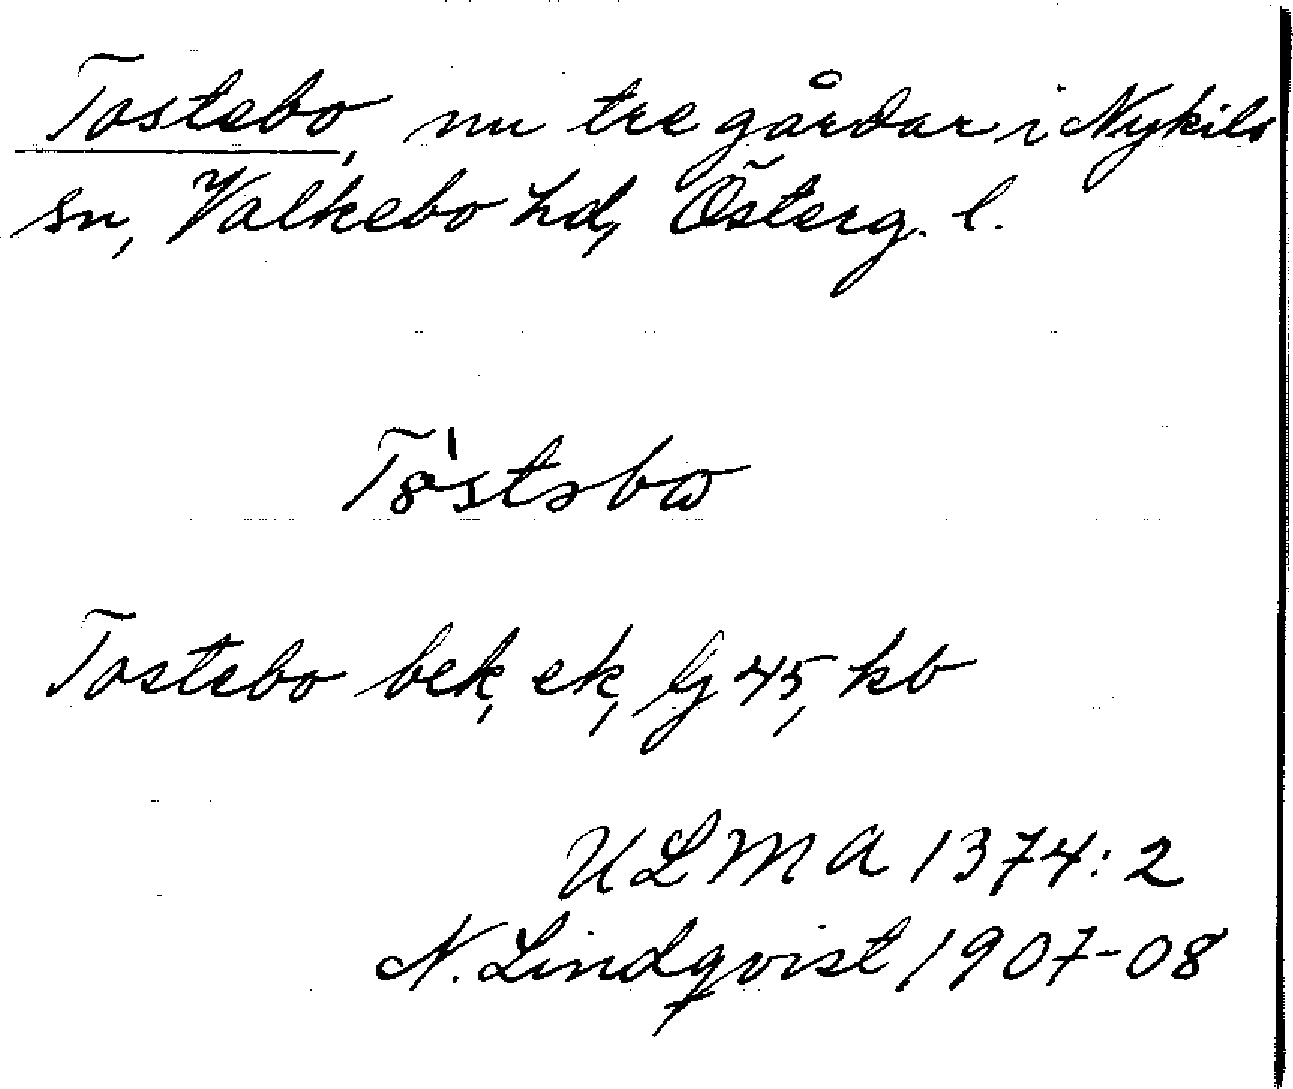 Tostebo, nu tre gårdar i Nykils
sn, Valkebo hd, Österg. l.
Tȣ'stəbɷ
Tostebo bek, ek, lg 45, kb
ULMA 1374:2
N. Lindqvist 1907-08